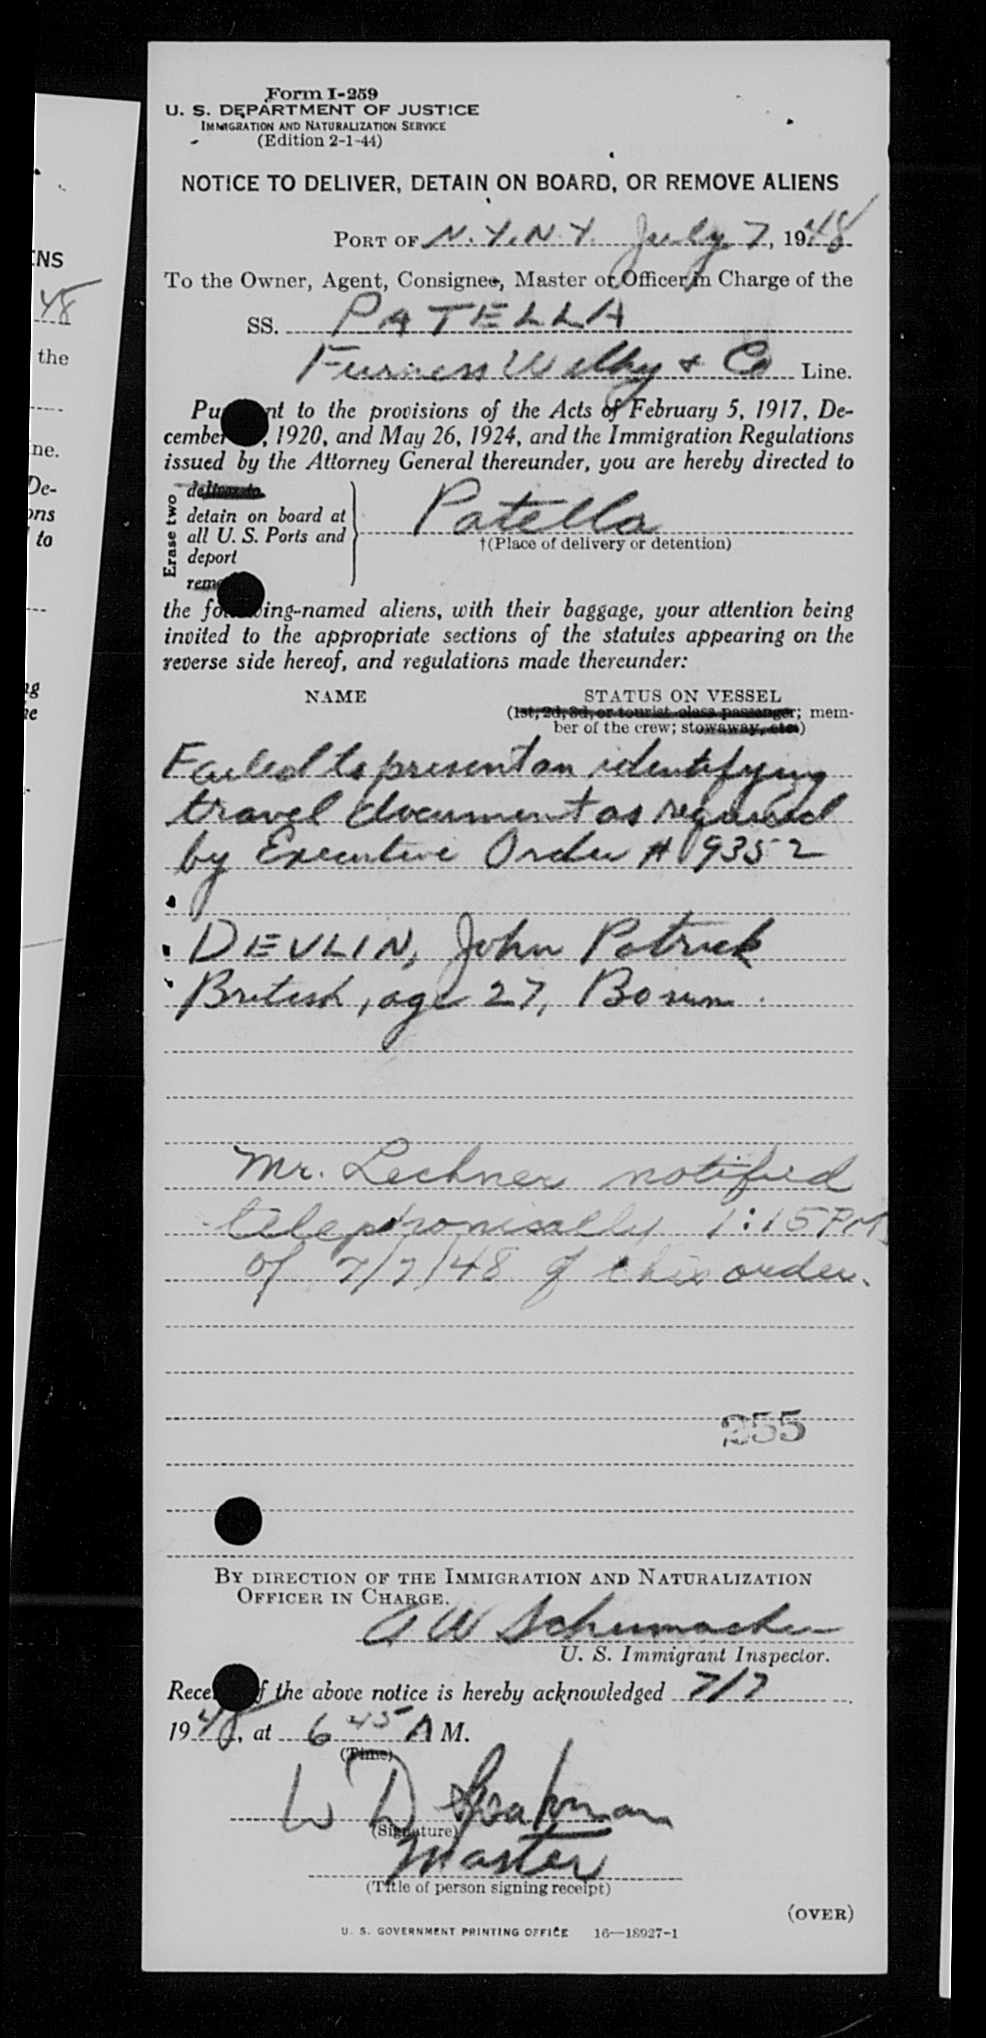 Form I-259
U. S. DEPARTMENT OF JUSTICE
IMMIGRATION AND NATURALIZATION SERVICE
(Edition 2-1-44)
NOTICE TO DELIVER, DETAIN ON BOARD, OR REMOVE ALIENS
PORT OF N.Y.N.Y. July 7, 1948
To the Owner, Agent, Consignee, Master or Officer in Charge of the
SS. PATELLA
Furness Withy & Co Line.
Pu nt to the provisions of the Acts of February 5, 1917, De-
cember , 1920, and May 26, 1924, and the Immigration Regulations
issued by the Attorney General thereunder, you are hereby directed to
Erase two
deliver to
detain on board at
all U. S. Ports and
deport
remo
Patella
†(Place of delivery or detention)
the fo wing-named aliens, with their baggage, your attention being
invited to the appropriate sections of the statutes appearing on the
reverse side hereof, and regulations made thereunder:
NAME STATUS ON VESSEL
(1st, 2d, 3d, or tourist class passenger; mem-
ber of the crew; stowaway, etc.)
Failed to present an identifying
travel document as required
by Executive Order # 9352
DEVLIN, John Patrick
British, age 27, Bosun.
Mr. Lechner notified
telephonically 1:15 PM
of 7/7/48 of this order.
255
BY DIRECTION OF THE IMMIGRATION AND NATURALIZATION
OFFICER IN CHARGE.
A W Schumacher
U. S. Immigrant Inspector.
Rece f the above notice is hereby acknowledged 7/7
1948, at 6 45 A M.
(Time)
W D Spakman
(Signature)
Master
(Title of person signing receipt)
(OVER)
U. S. GOVERNMENT PRINTING OFFICE 16—18927-1
ENS
48
the
ne.
De-
ons
to